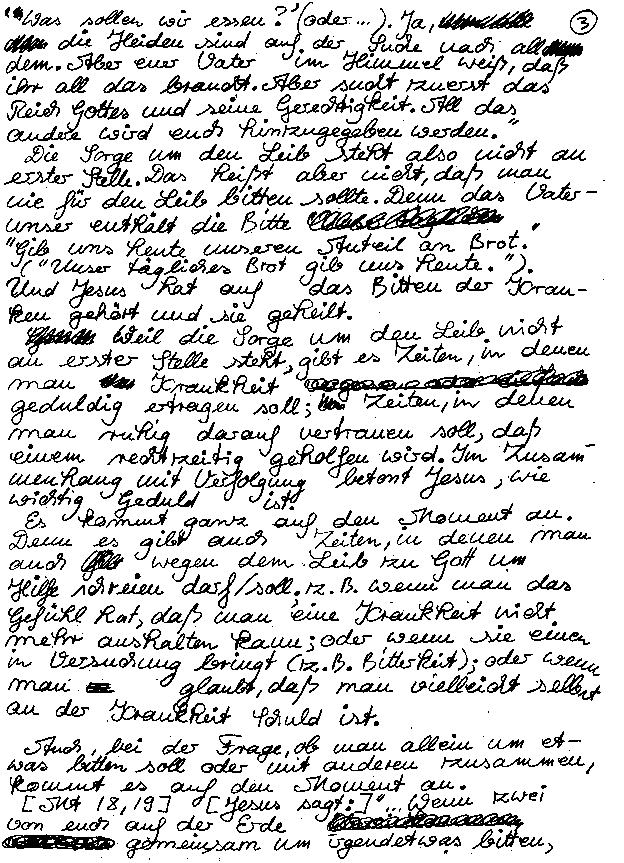 "Was sollen wir essen?" (oder ...). Ja, ③
die Heiden sind auf der Suche nach all
dem. Aber euer Vater im Himmel weiß, daß
ihr all das braucht. Aber sucht zuerst das
Reich Gottes und seine Gerechtigkeit. All das
andere wird euch hinzugegeben werden."
Die Sorge um den Leib steht also nicht an
erster Stelle. Das heißt aber nicht, daß man
nie für den Leib bitten sollte. Denn das Vater-
unser enthält die Bitte
"Gib uns heute unseren Anteil an Brot."
("Unser tägliches Brot gib uns heute.").
Und Jesus hat auf das Bitten der Kran-
ken gehört und sie geheilt.
Weil die Sorge um den Leib nicht
an erster Stelle steht, gibt es Zeiten, in denen
man Krankheit
geduldig ertragen soll; Zeiten, in denen
man ruhig darauf vertrauen soll, daß
einem rechtzeitig geholfen wird. Im Zusam-
menhang mit Verfolgung betont Jesus, wie
wichtig Geduld ist.
Es kommt ganz auf den Moment an.
Denn es gibt auch Zeiten, in denen man
auch wegen dem Leib zu Gott um
Hilfe schreien darf/soll, z.B. wenn man das
Gefühl hat, daß man eine Krankheit nicht
mehr aushalten kann; oder wenn sie einen
in Versuchung bringt (z.B. Bitterkeit); oder wenn
man glaubt, daß man vielleicht selbst
an der Krankheit schuld ist.
Auch bei der Frage, ob man allein um et-
was bitten soll oder mit anderen zusammen,
kommt es auf den Moment an.
[Mt 18,19] [Jesus sagt:] "... Wenn zwei
von euch auf der Erde
gemeinsam um irgendetwas bitten,